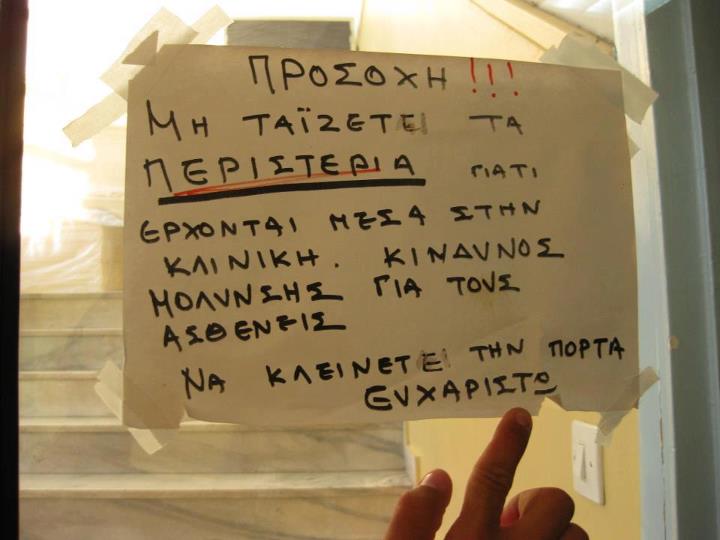 ΠΡΟΣΟΧΗ!!!
ΜΗ ΤΑΪΖΕΤΕ ΤΑ
ΠΕΡΙΣΤΕΡΙΑ ΓΙΑΤΙ
ΕΡΧΟΝΤΑΙ ΜΕΣΑ ΣΤΗΝ
ΚΛΙΝΙΚΗ. ΚΙΝΔΥΝΟΣ
ΜΟΛΥΝΣΗΣ ΓΙΑ ΤΟΥΣ
ΑΣΘΕΝΕΙΣ
ΝΑ ΚΛΕΙΝΕΤΕ ΤΗΝ ΠΟΡΤΑ
ΕΥΧΑΡΙΣΤΩ